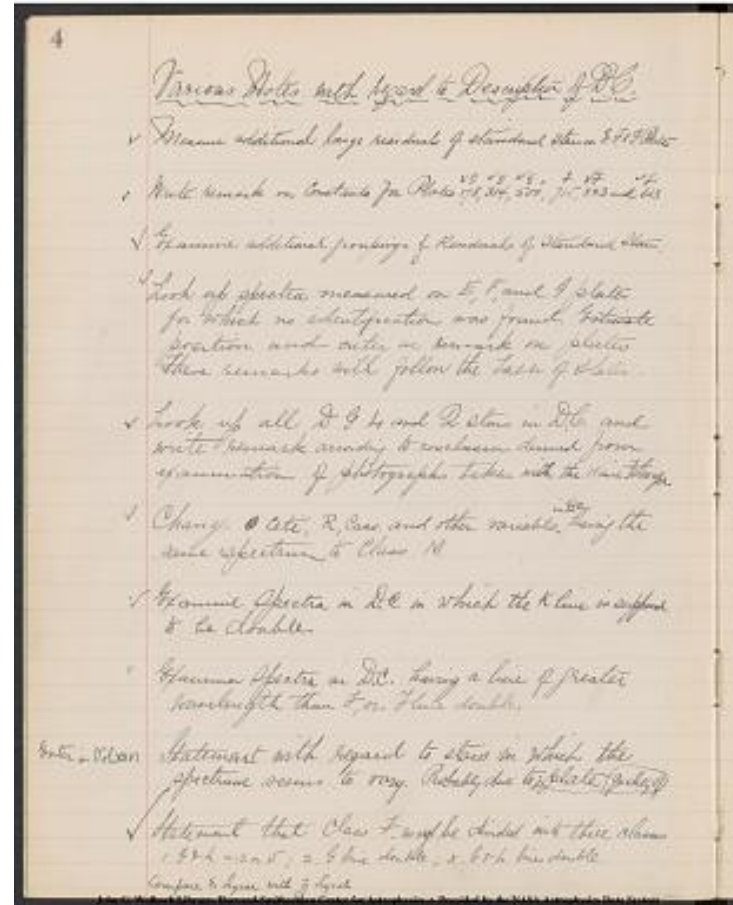 4
Various Notes with regard to Description of D.C.
✓ Measure additional large residuals of standard stars
Write remark on Constants for Plates and
✓ Examine additional groupings of Residuals of Standard Stars.
Look up spectra measured on E, F, and G plates
for which no identification was found. Estimate
position and enter in remark on plates
these remarks will follow the Table of plates.
✓ Look up all and Q stars in D.C. and
write remark according to conclusion derived from
examination of photographs taken with the
Change o Ceti, R, Cass. and other variables having the
same spectrum to Class M
✓ Examine Spectra in D.C. in which the K line is supposed
to be double.
Examine Spectra in D.C. having a line of greater
wavelength than F, or F line double.
Statement with regard to stars in which the
spectrum seems to vary. Probably due to plate
✓ Statement that Class F, may be divided into three classes
line double, line double
Compare Lyrae with Lyrae